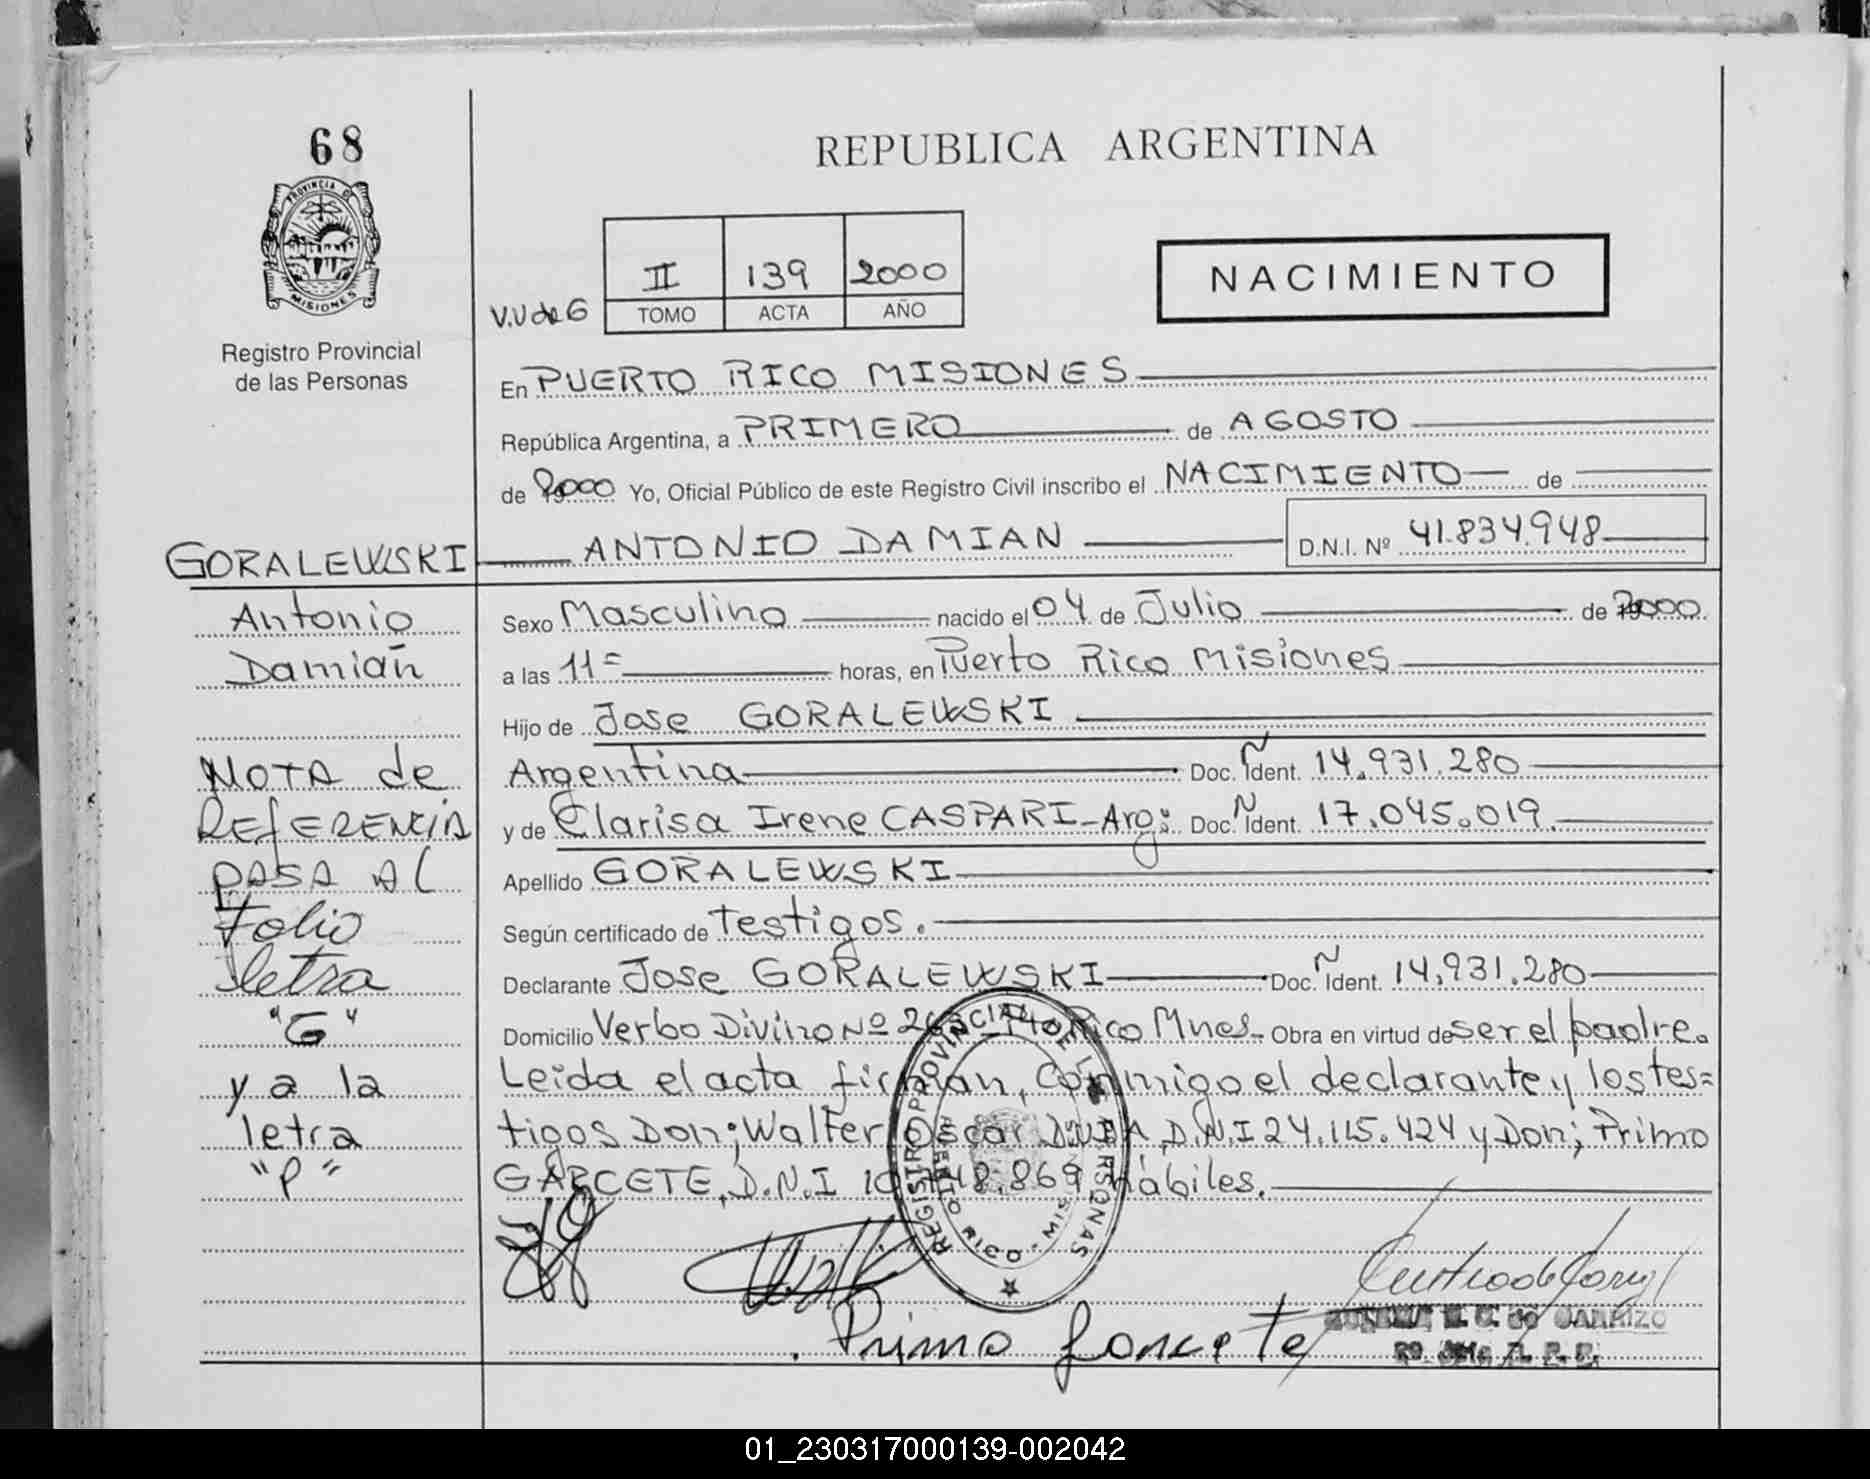 68
REPUBLICA ARGENTINA
PROVINCIA DE
MISIONES
Registro Provincial
de las Personas
V.V de G
II 139 2000
TOMO ACTA AÑO
NACIMIENTO
En PUERTO RICO MISIONES
República Argentina, a PRIMERO de AGOSTO
de 2000 Yo, Oficial Público de este Registro Civil inscribo el NACIMIENTO de
GORALEWSKI ANTONIO DAMIAN D.N.I. Nº 41.834.948
Antonio
Damián
NOTA de
REfERENCIA
PASA AL
Folio
letra
"G"
y a la
letra
"P"
Sexo Masculino nacido el 04 de Julio de 2000
a las 11= horas, en Puerto Rico Misiones
Hijo de Jose GORALEWSKI
Argentina Doc. Ident. 14.931.280
y de Clarisa Irene CASPARI-Arg: Doc. Ident. 17.045.019.
Apellido GORALEWSKI
Según certificado de Testigos.
Declarante Jose GORALEWSKI Doc. Ident. 14.931.280
Domicilio Verbo Divino Nº Pto Rico Mnes- Obra en virtud de ser el padre.
Leida el acta firman, Conmigo el declarante y los tes=
tigos Don; Walter Oscar D.N.I 24.115.424 y Don; Primo
GARCETE, D.N.I hábiles.
REGISTRO PROVINCIAL DE LAS PERSONAS
PUERTO RICO - MIS
Primo Garcete
CARRIZO
01_230317000139-002042